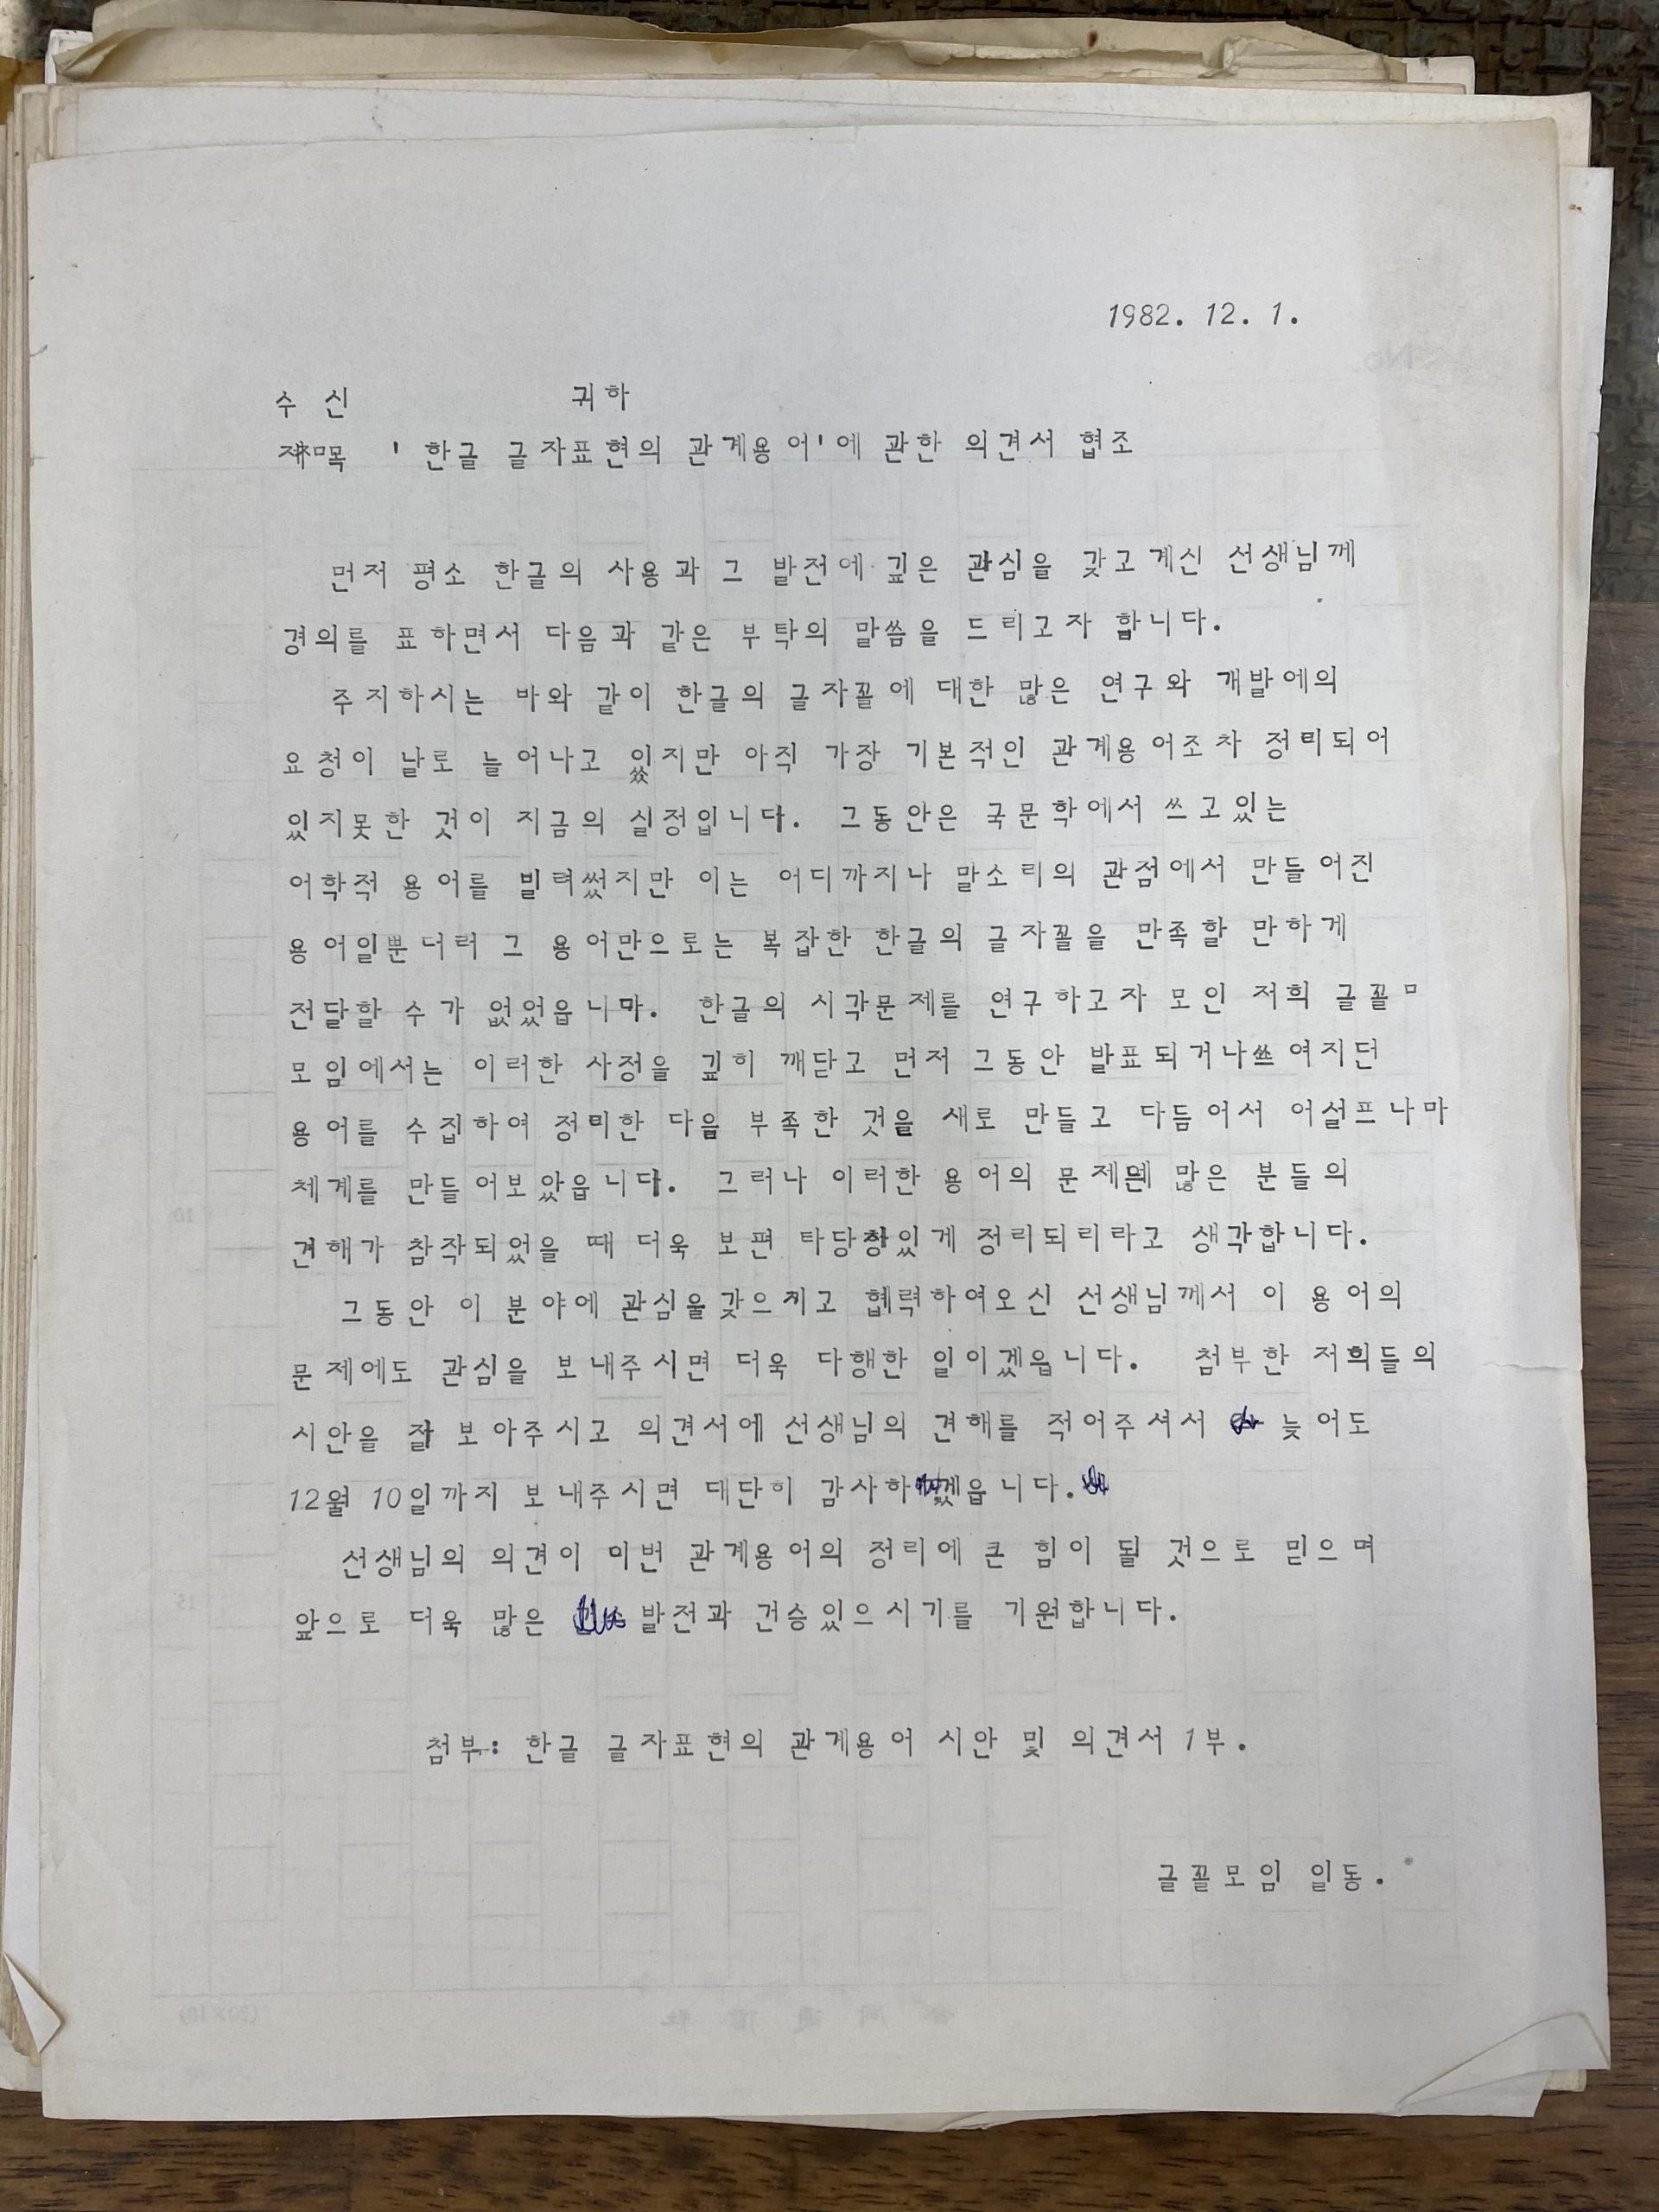 1982. 12. 1.
수 신 귀하
제목 '한글 글자표현의 관계용어'에 관한 의견서 협조
먼저 평소 한글의 사용과 그 발전에 깊은 관심을 갖고계신 선생님께
경의를 표하면서 다음과 같은 부탁의 말씀을 드리고자 합니다.
주지하시는 바와 같이 한글의 글자꼴에 대한 많은 연구와 개발에의
요청이 날로 늘어나고 있지만 아직 가장 기본적인 관계용어조차 정리되어
있지못한 것이 지금의 실정입니다. 그동안은 국문학에서 쓰고있는
어학적 용어를 빌려썼지만 이는 어디까지나 말소리의 관점에서 만들어진
용어일뿐더러 그 용어만으로는 복잡한 한글의 글자꼴을 만족할 만하게
전달할 수가 없었읍니다. 한글의 시각문제를 연구하고자 모인 저희 글꼴ㅁ
모임에서는 이러한 사정을 깊히 깨닫고 먼저 그동안 발표되거나쓰여지던
용어를 수집하여 정리한 다음 부족한 것을 새로 만들고 다듬어서 어설프나마
체계를 만들어보았읍니다. 그러나 이러한 용어의 많은 분들의
견해가 참작되었을 때 더욱 보편 정리되리라고 생각합니다.
그동안 이 분야에 관심을갖으시고 협력하여오신 선생님께서 이 용어의
문제에도 관심을 보내주시면 더욱 다행한 일이겠읍니다. 첨부한 저희들의
시안을 잘 보아주시고 의견서에 선생님의 견해를 적어주셔서 늦어도
12월 10일까지 보내주시면 대단히 감사하겠읍니다.
선생님의 의견이 이번 관계용어의 정리에 큰 힘이 될 것으로 믿으며
앞으로 더욱 많은 발전과 건승있으시기를 기원합니다.
첨부: 한글 글자표현의 관계용어 시안 및 의견서 1부.
글꼴모임 일동.